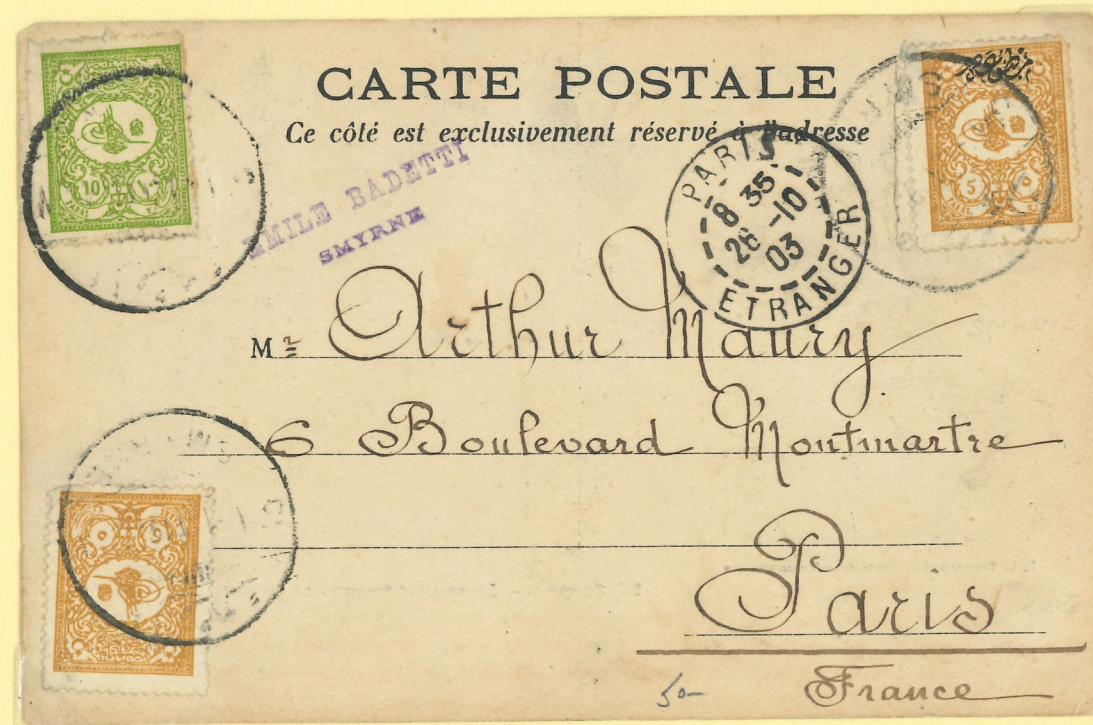 CARTE POSTALE
Ce côté est exclusivement réservé à l'adresse
EMILE BADETTI
SMYRNE
PARIS
8 35
26 -10
03
ETRANGER
10
5
5
Mr Arthur Maury
6 Boulevard Montmartre
Paris
France
50-